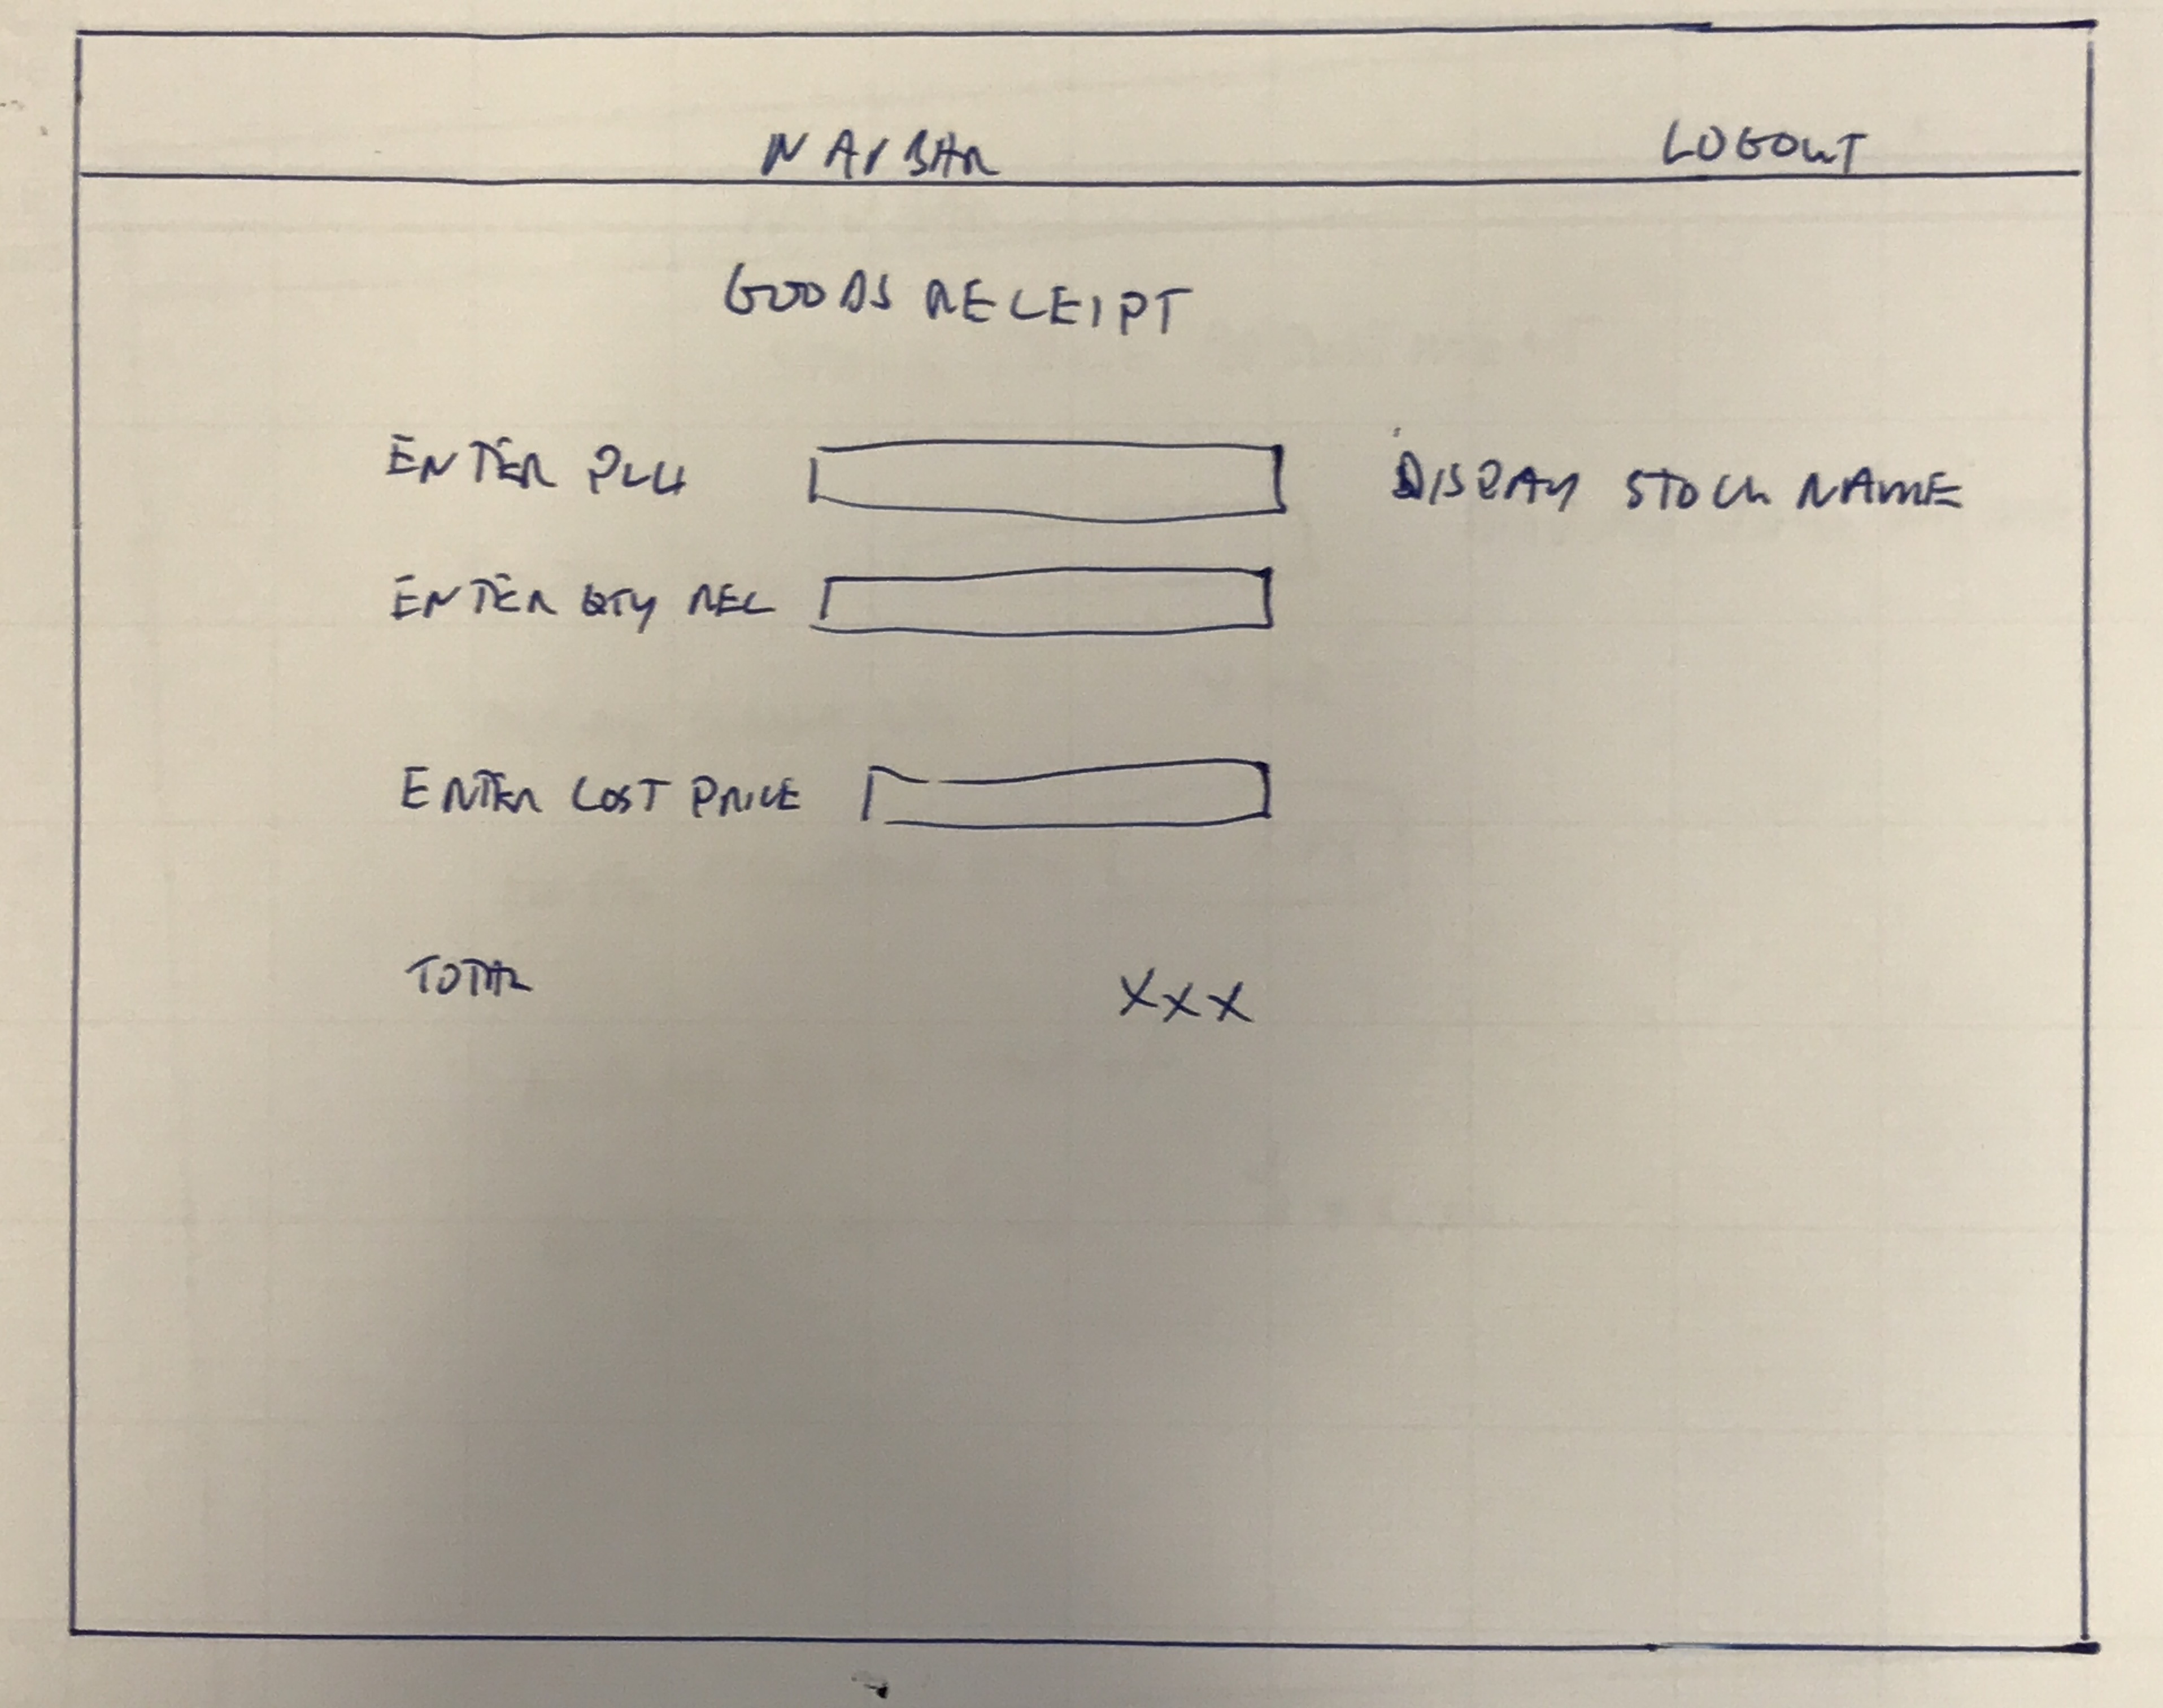 NAVBAR LOGOUT
GOODS RECEIPT
ENTER PLU DISPLAY STOCK NAME
ENTER QTY REC
ENTER COST PRICE
TOTAL XXX